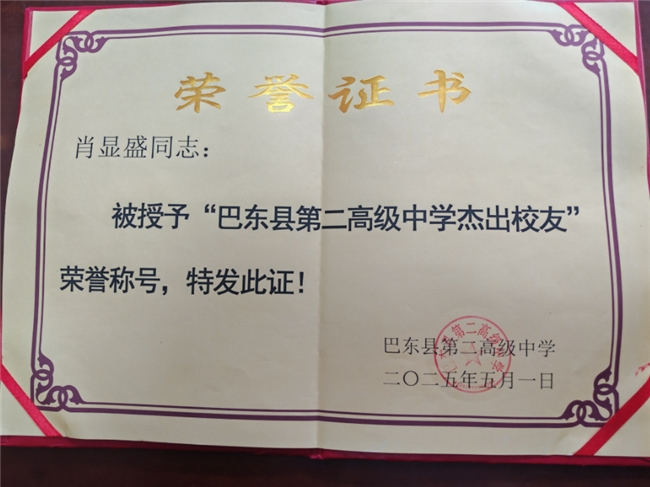 荣誉证书
肖显盛同志：
被授予“巴东县第二高级中学杰出校友”
荣誉称号，特发此证！
巴东县第二高级中学
二〇二五年五月一日